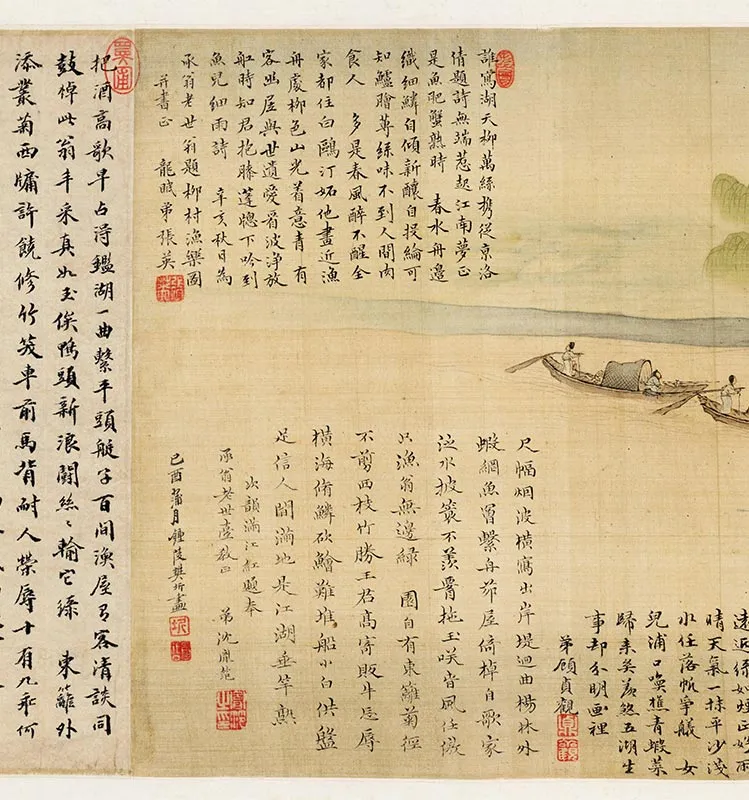 遠近綠如煙正好雨
晴天氣一抹平沙淺
水任落帆爭艤　女
兒浦口喚樵青蝦菜
歸來矣羨煞五湖生
事却分明画裡
弟顧貞觀
誰寫湖天柳萬絲携從京洛
倩題詩無端惹起江南夢正
是魚肥蟹熟時　春水舟邊
纖細鱗自傾新釀自投綸可
知鱸膾蓴絲味不到人間肉
食人　多是春風醉不醒全
家都住白鷗汀妬他畫近漁
舟處柳色山光着意青　有
客幽居與世遺愛看波淨放
舡時知君抱膝蓬牕下吟到
魚兒細雨詩　辛亥秋日為
承翁老世翁題柳村漁樂圖
并書正　龍眠弟張英
尺幅烟波橫寫出岸堤迴曲楊林外
蝦網魚罾繫舟茆屋倚棹自歌家
泛水披簑不羨腰拖玉咲音風任傲
只漁翁無邊綠　園自有東籬菊徑
不剪西枝竹勝王君高寄販牛忘辱
橫海脩鱗砍鱠難堆船小白供盤
足信人間滿地是江湖垂竿熟
次韻滿江紅題奉
承翁老世臺政正　弟沈胤范
己酉蒲月鍾陵樊圻畫
把酒高歌早占得鑑湖一曲繫平頭艇子百間漁屋有客清談同
鼓棹此翁丰采真如玉俟鴨頭新浪鬪絲絲輸它綠　東籬外
添叢菊西牖許饒修竹笑車前馬背耐人榮辱十有九乖何